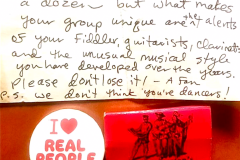 a dozen — but what makes
your group unique are the talents
of your Fiddler, guitarists, clarinetist
and the unusual musical style
you have developed over the years.
Please don't lose it! — A Fan.
P.S. we don't think you're dancers!
I ♥
REAL
PEOPLE